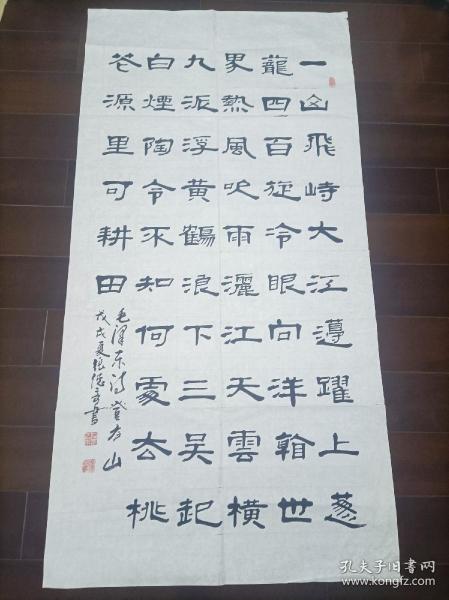 一山飛峙大江邊躍上蔥
龍四百旋冷眼向洋看世
界熱風吹雨灑江天雲橫
九派浮黃鶴浪下三吳起
白煙陶令不知何處去桃
花源里可耕田
毛澤东詩登庐山
戊戌夏張德書
孔夫子旧书网
www.kongfz.com